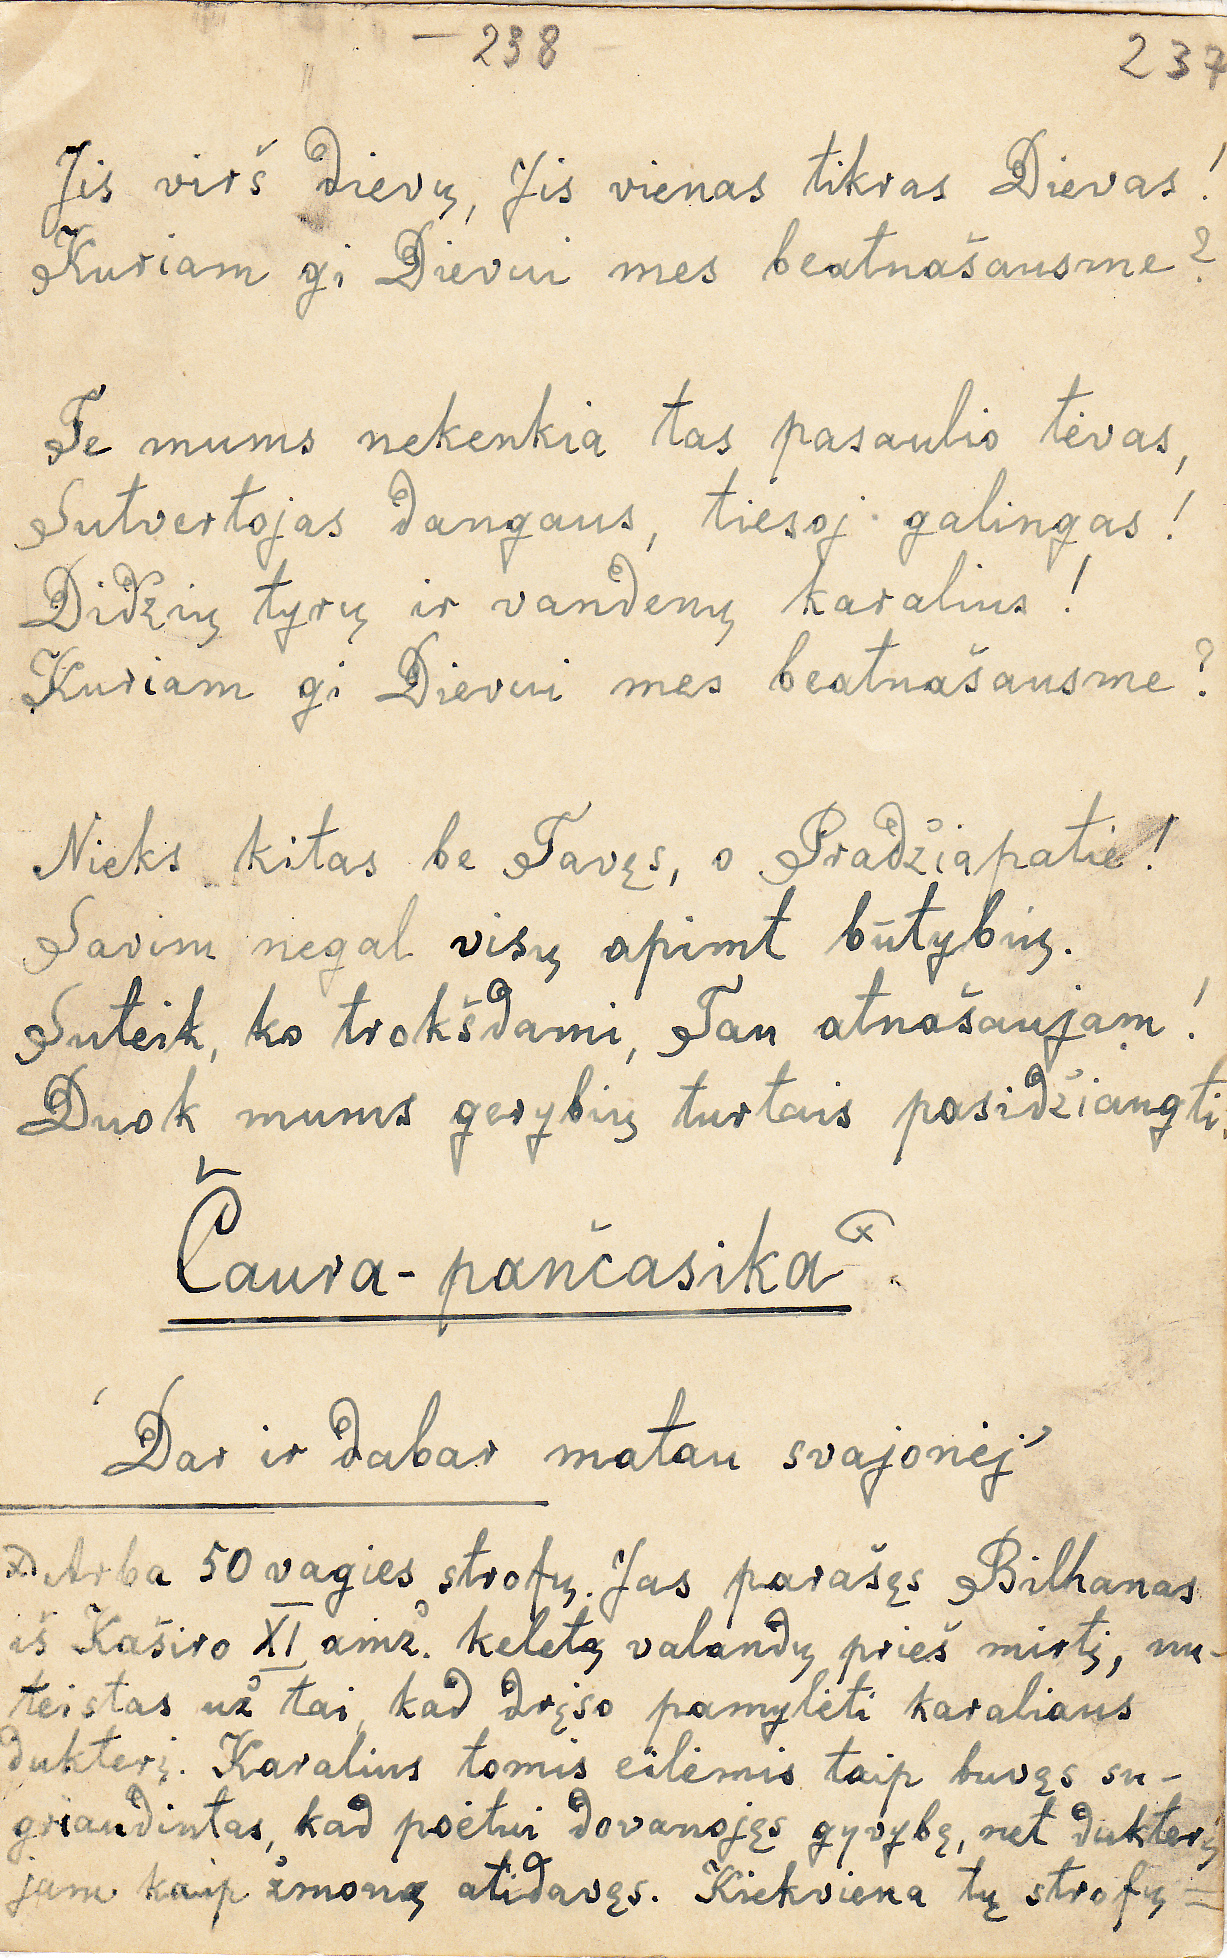 – 238 –
237
Jis virš dievų, Jis vienas tikras Dievas!
Kuriam gi Dievui mes beatnašausme?
Te mums nekenkia tas pasaulio tėvas,
Sutvertojas dangaus, tiesoj galingas!
Didžių tyrų ir vandenų karalius!
Kuriam gi Dievui mes beatnašausme?
Nieks kitas be Tavęs, o Pradžiapatie!
Savim negal visų apimt būtybių.
Suteik, ko trokšdami, Tau atnašaujam!
Duok mums gerybių turtais pasidžiaugti.
Čaura-pančasika x)
'Dar ir dabar matau svajonėj'
x) Arba 50 vagies strofų. Jas parašęs Bilhanas
iš Kaširo XI amž. keletą valandų prieš mirtį, nu-
teistas už tai, kad drįso pamylėti karaliaus
dukterį. Karalius tomis eilėmis taip buvęs su-
griaudintas, kad poėtui dovanojęs gyvybę, net dukterį
jam kaip žmoną atidavęs. Kiekviena tų strofų =